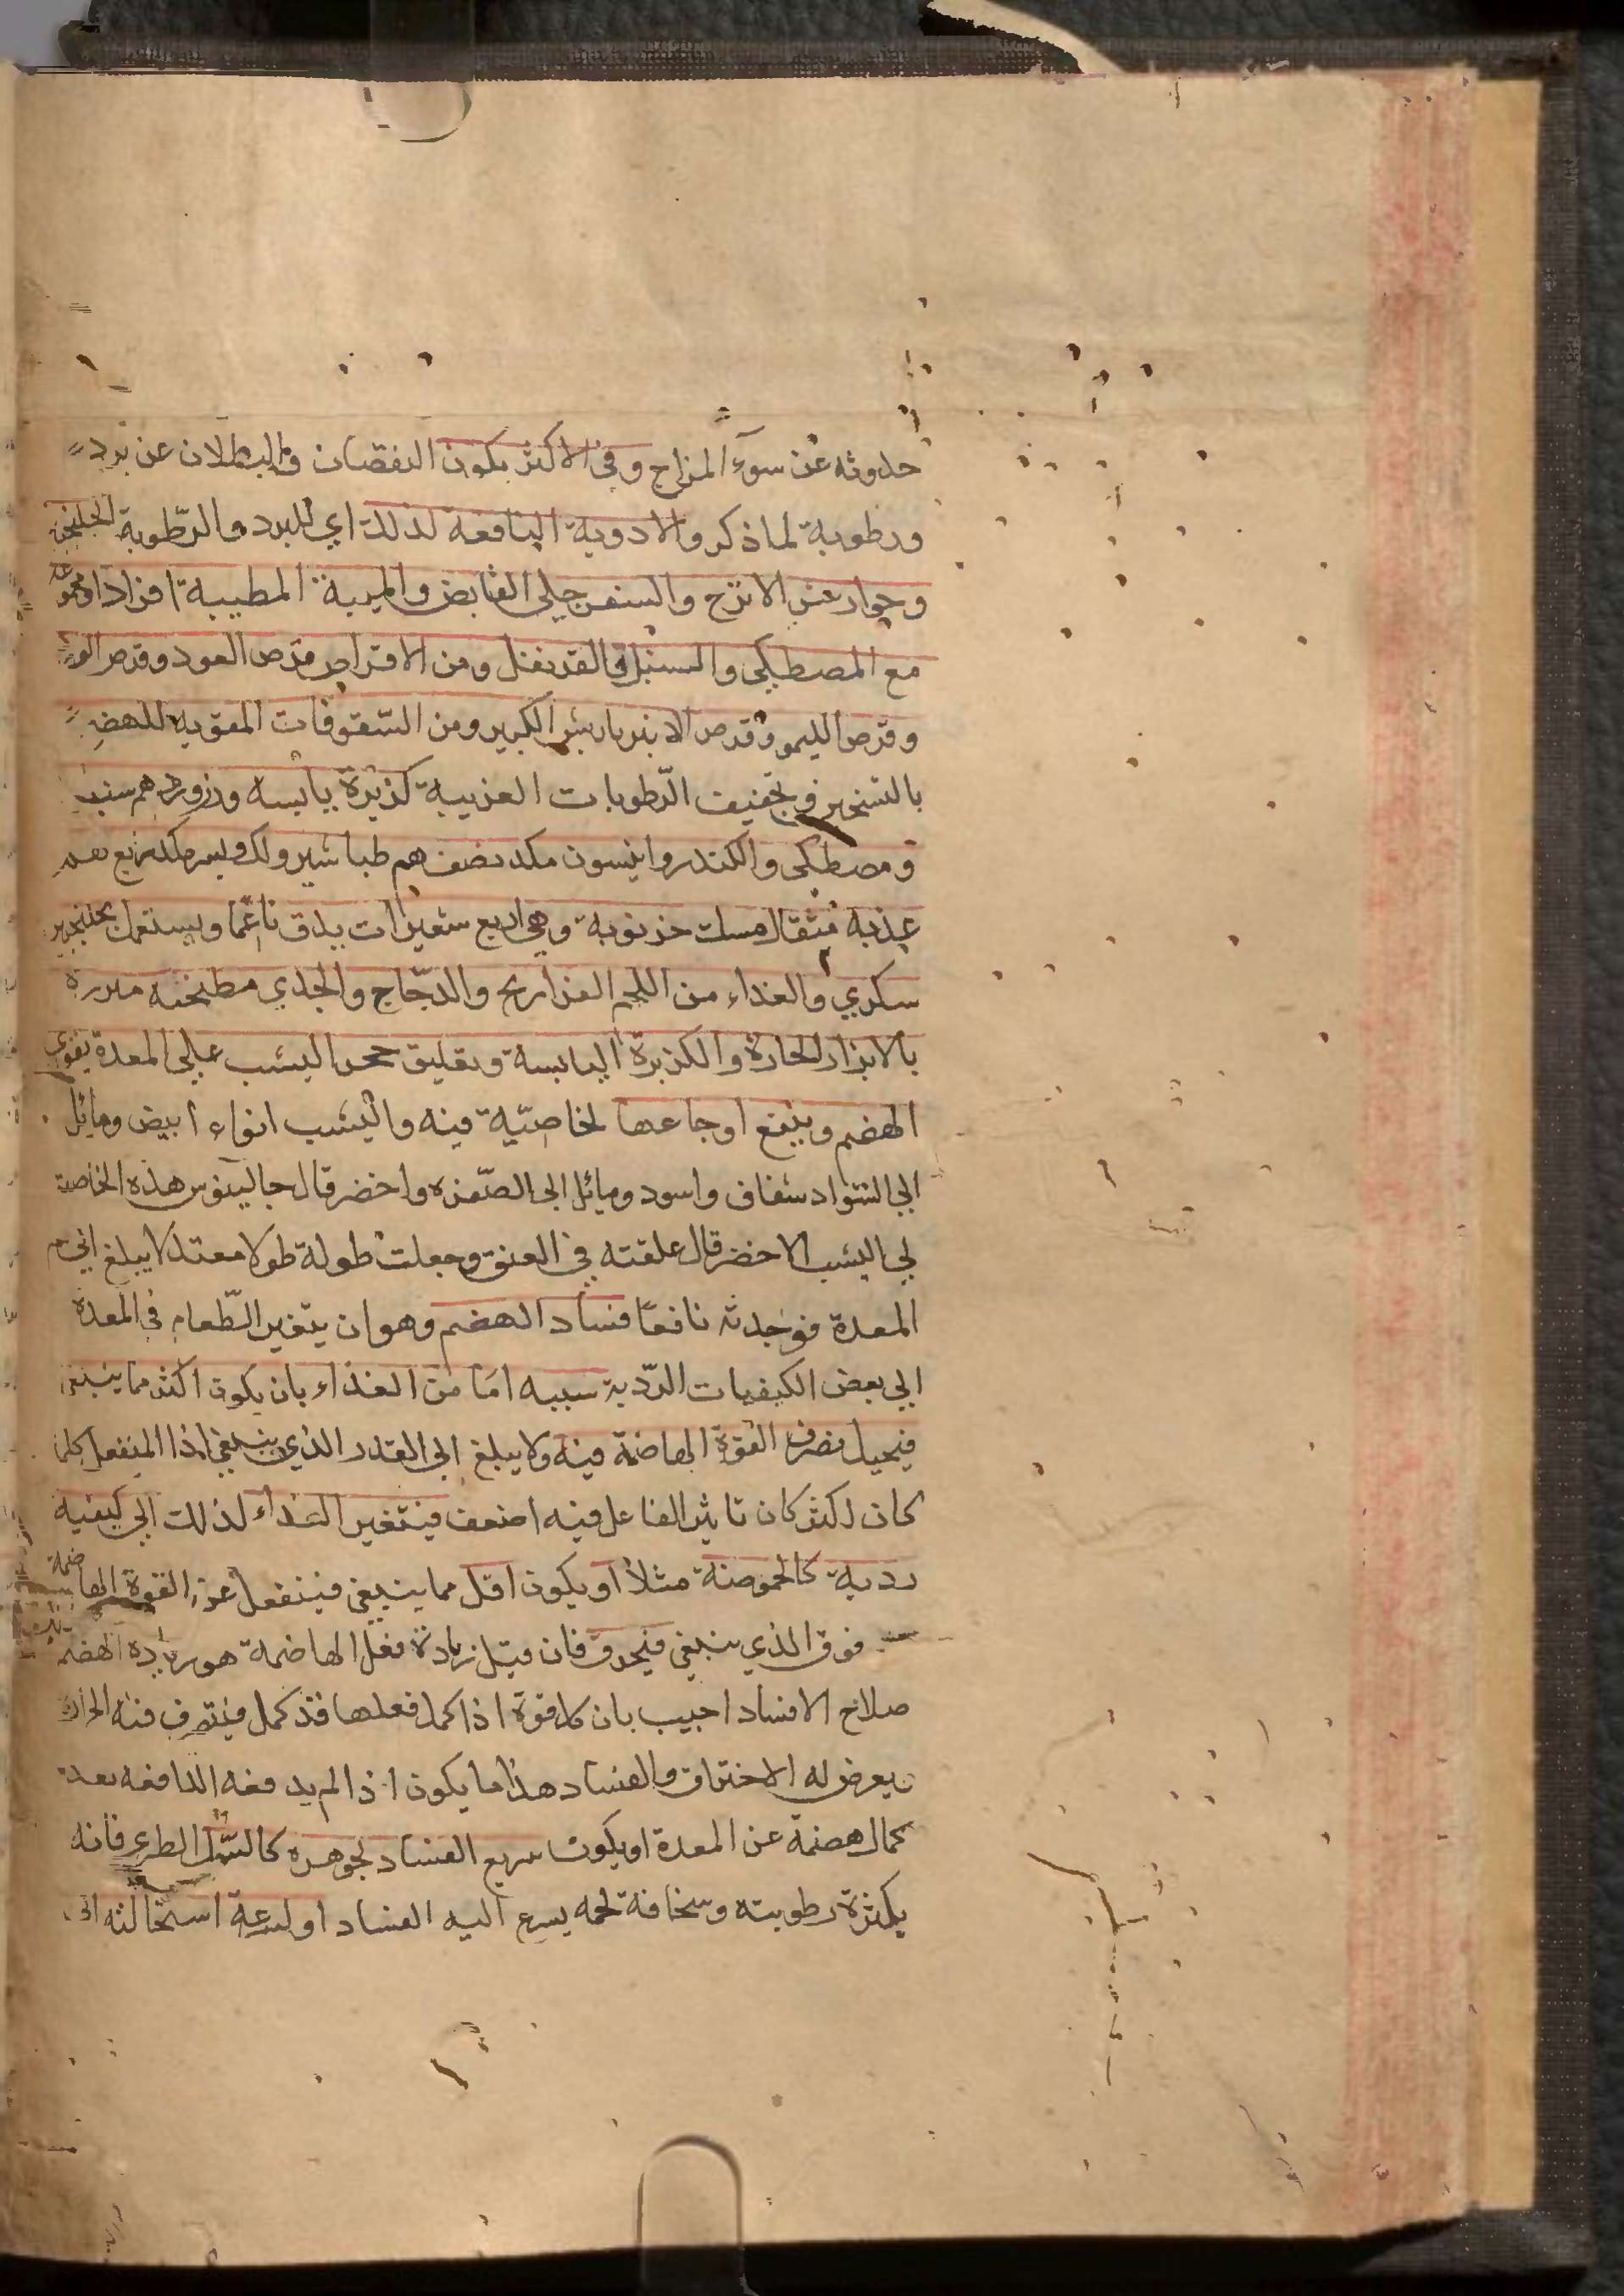 حدوثه عن سوء المزاج وفي الاكثر يكون النقصان والبطلان عن برد
ورطوبة لما ذكر والادوية النافعة لذلك اي للبرد والرّطوبة الجلنجبين
وجوارشن الاترج والسفرجلي القابض والميبة المطيبة افرادا ومجموعة
مع المصطكي والسنبل والقرنفل ومن الاقراص قرص العود وقرص الورد
وقرص الليمو وقرص الانبرباريس الكبير ومن السّفوفات المقويه للهضم
بالتسخين وتجفيف الرّطوبات الغريبة كزبرة يابسه وزرورد هم سنبل
ومصطكى والكندر وانيسون مكد نصف هم طباشير ولك وبسر مكد ربع
عذبه مثقال مسك خرنوبة وهي اربع شعيرات يدق ناعما ويستعمل بجلنجبين
سكري والغذاء من اللحم الفراريح والدجّاج والجدي مطجنه مبزرة
بالابزار الحارة والكزبرة اليابسة وتعليق حجر اليشب على المعدة يقوى
الهضم وينفع اوجاعها لخاصيّية فيه واليشب انواع ابيض ومايل
الى السواد شفاف واسود ومائل الى الصّفره واخضر قال جالينوس هذه الخاصة
في اليشب الاخضر قال علقته في العنق وجعلت طوله طولا معتدلا يبلغ الى فم
المعدة فوجدته نافعًا فساد الهضم وهو ان يتغير الطّعام في المعدة
الى بعض الكيفيات الرّدية سببه امّا من الغذاء بان يكون اكثر مما ينبغي
فيحيل تصرف القوة الهاضمة فيه ولا يبلغ الى القدر الذي ينبغي اذا المنفعل كلما
كان اكثر كان تاثير الفاعل فيه اضعف فيتغير الغذاء لذلك الى كيفيه
ردية كالحموضة مثلا او يكون اقل مما ينبغي فينفعل عن القوة الهاضمة
فوق الذي ينبغي فيحرق فان قيل زيادة فعل الهاضمة هو زيادة الهضم
صلاح لا فساد اجيب بان كل قوة اذا كمل فعلها فقد كمل فيتصرف فيه الحرارة
يعرض له الاحتراق والفساد هذا ما يكون اذا لم يدفعه الدافعه بعد
كمال هضمة عن المعدة او يكون سريع الفساد لجوهره كالسّمك الطري فانه
بكثرة رطوبته وسخافة لحمه يسرع اليه الفساد او لسرعة استحالته الى